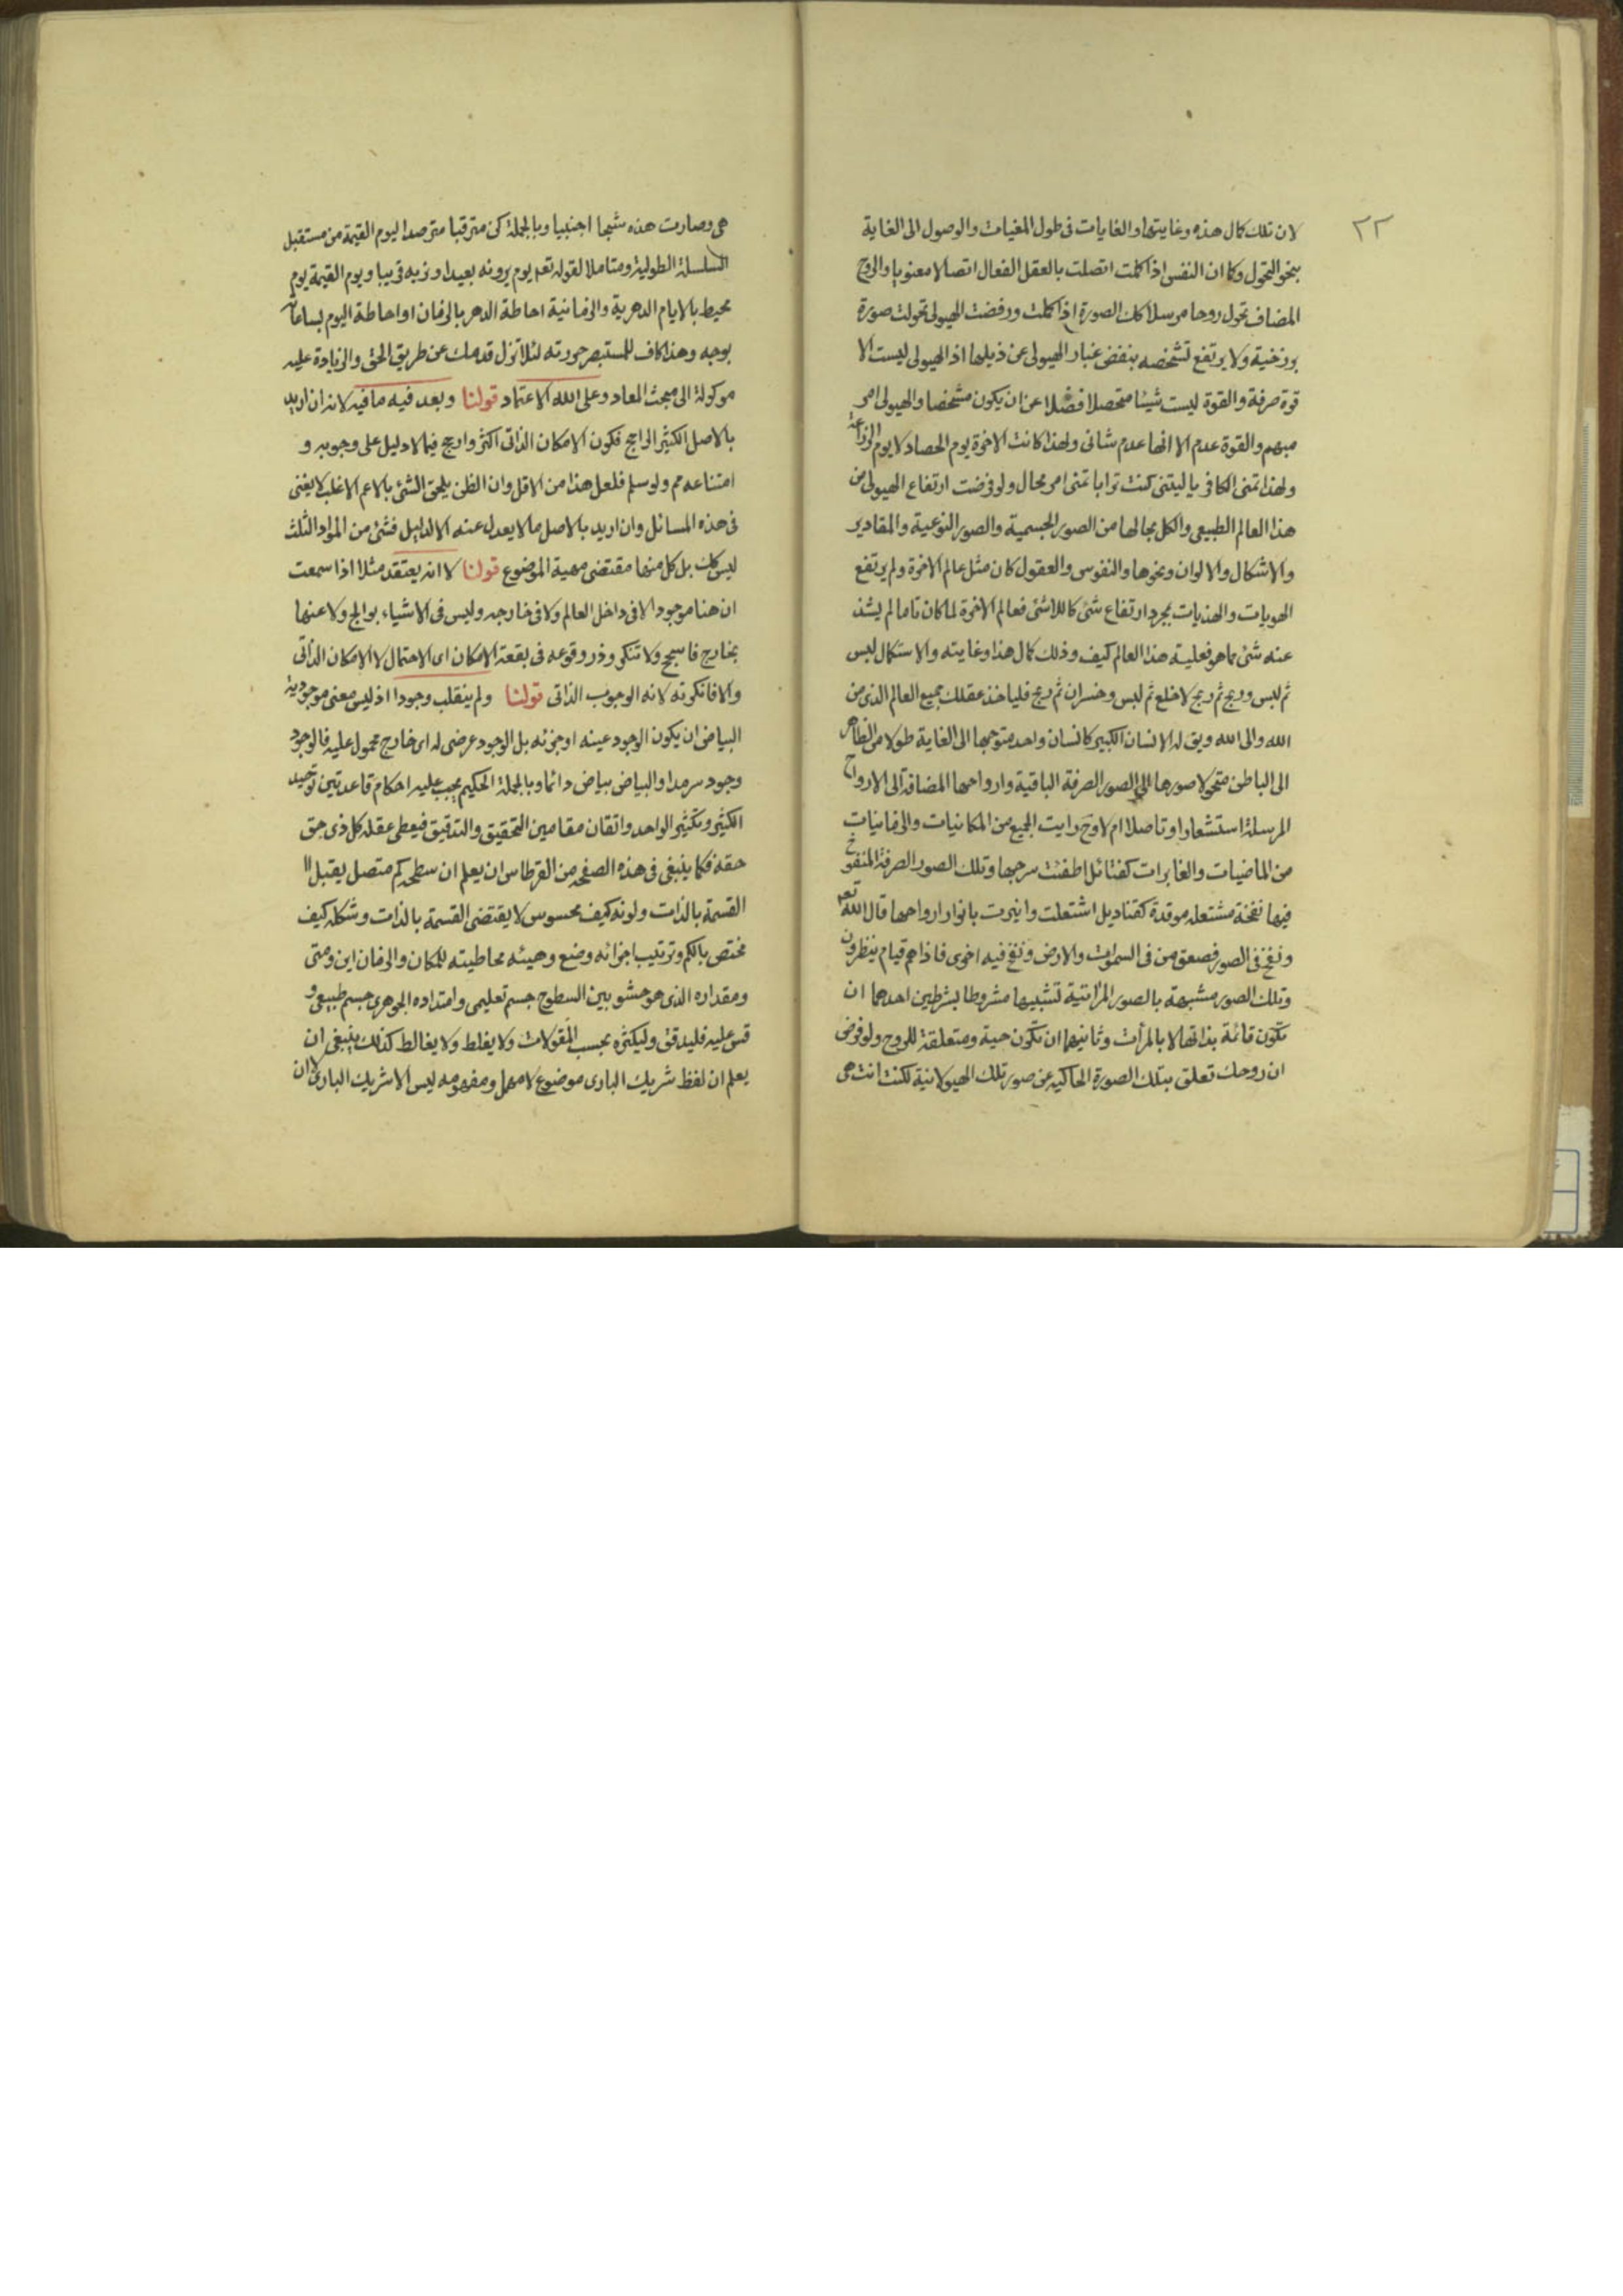 ٢٢
لان تلك كمال هذه وغايتها والغايات فى طول المغييات والوصول الى الغاية
بنحو التحول وكما ان النفس اذا كملت اتصلت بالعقل الفعال اتصالا معنويا والروح
المضاف تحول روحا مرسلا كك الصورة اذا كملت ورفضت الهيولى تحولت صورة
برزخية ولا يرتفع تشخصه بنفض غبار الهيولى عن ذيلها اذ الهيولى ليست الا
قوة صرفة والقوة ليست شيئا متحصلا فضلا عن ان يكون مشخصا والهيولى امر
مبهم والقوة عدم الا انها عدم شانى ولهذا كانت الاخرة يوم الحصاد لا يوم الزراعة
ولهذا تمنى الكافر يا ليتنى كنت ترابا تمنى امر محال ولو فرضت ارتفاع الهيولى من
هذا العالم الطبيعى والكل بحالها من الصور الجسمية والصور النوعية والمقادير
والاشكال والالوان ونحوها والنفوس والعقول كان مثل عالم الاخرة ولم يرتفع
الهويات والهذيات بمجرد ارتفاع شئ كاللاشئ فعالم الاخرة لما كان تاما لم يشذ
عنه شئ مما هو فعلية هذا العالم كيف وذلك كمال هذا وغايته والاستكمال لبس
ثم لبس وربح ثم ربح لا خلع ثم لبس وخسران ثم ربح فلياخذ عقلك جميع العالم الذى من
الله والى الله ويق له الانسان الكبير كانسان واحد متوجها الى الغاية طولا من الظاهر
الى الباطن متحولا صورها الى الصور الصرفة الباقية وارواحها المضافة الى الارواح
المرسلة استشعارا وتاصلا ام لا وح رايت الجميع من المكانيات والزمانيات
من الماضيات والغابرات كفتائل اطفئت سرجها وتلك الصور الصرفة المنفوخ
فيها نفخة مشتعله موقدة كقناديل اشتعلت وانيرت بانوار ارواحها قال الله تعه
ونفخ فى الصور فصعق من فى السموات والارض ونفخ فيه اخرى فاذا هم قيام ينظرون
وتلك الصور مشبهة بالصور المرآتية تشبيها مشروطا بشرطين احدهما ان
تكون قائمة بذاتها لا بالمرأت وثانيهما ان تكون حية ومتعلقة للروح ولو فرض
ان روحك تعلق بتلك الصورة الحاكية عن صورتك الهيولانية لكنت انت هى
هى وصارت هذه شبحا اجنبيا وبالجملة كن مترقبا مترصدا ليوم القيمة من مستقبل
السلسلة الطولية ومتاملا لقوله تعه يوم يرونه بعيدا ونريه قريبا ويوم القيمة يوم
محيط بالايام الدهرية والزمانية احاطة الدهر بالزمان او احاطة اليوم بساعاته
بوجه وهذا كاف للمستبصر حررته لئلا تزل قدمك عن طريق الحق والزيادة عليه
موكولة الى مبحث المعاد وعلى الله الاعتماد قولنا وبعد فيه ما فيه لانه ان اريد
بالاصل الكثير الراجح فكون الامكان الذاتى اكثر وارجح فيما لا دليل على وجوبه و
امتناعه مم ولو سلم فلعل هذا من الاقل وان الظن يلحق الشئ بالاعم الاغلب لا يغنى
فى هذه المسائل وان اريد بالاصل ما لا يعدل عنه الا لدليل فشئ من المواد الثلث
ليس كك بل كل منها مقتضى مهية الموضوع قولنا لا انه يعتقد مثلا اذا سمعت
ان هنا موجودا لا فى داخل العالم ولا فى خارجه وليس فى الاشياء بوالج ولا عنها
بخارج فاسجح ولا تنكر وذر وقوعه فى بقعة الامكان اى الاحتمال لا الامكان الذاتى
والا فانكرته لانه الوجوب الذاتى قولنا ولم ينقلب وجودا اذ ليس معنى موجودية
البياض ان يكون الوجود عينه او جزئه بل الوجود عرضى له اى خارج محمول عليه فالوجود
وجود سرمدا والبياض بياض دائما وبالجملة الحكيم يجب عليه احكام قاعدتين توحيد
الكثير وتكثير الواحد واتقان مقامين التحقيق والتدقيق فيعطى عقله كل ذى حق
حقه فكما ينبغى فى هذه الصفحه من القرطاس ان يعلم ان سطحه كم متصل يقبل
القسمة بالذات ولونه كيف محسوس لا يقتضى القسمة بالذات وشكله كيف
مختص بالكم وترتيب اجزائه وضع وهيئه محاطيته للمكان والزمان اين ومتى
ومقداره الذى هو حشو بين السطوح جسم تعليمى وامتداده الجوهرى جسم طبيعى و
قس عليه فليدقق وليكثره بحسب المقولات ولا يغلط ولا يغالط كذلك ينبغى ان
يعلم ان لفظ شريك البارى موضوع لا مهمل ومفهومه ليس الا شريك البارى لا ان